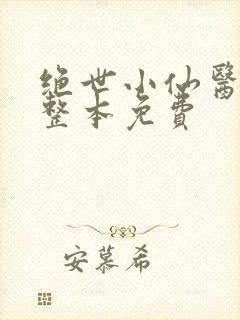 绝世小仙醫
整本免費
安慕希